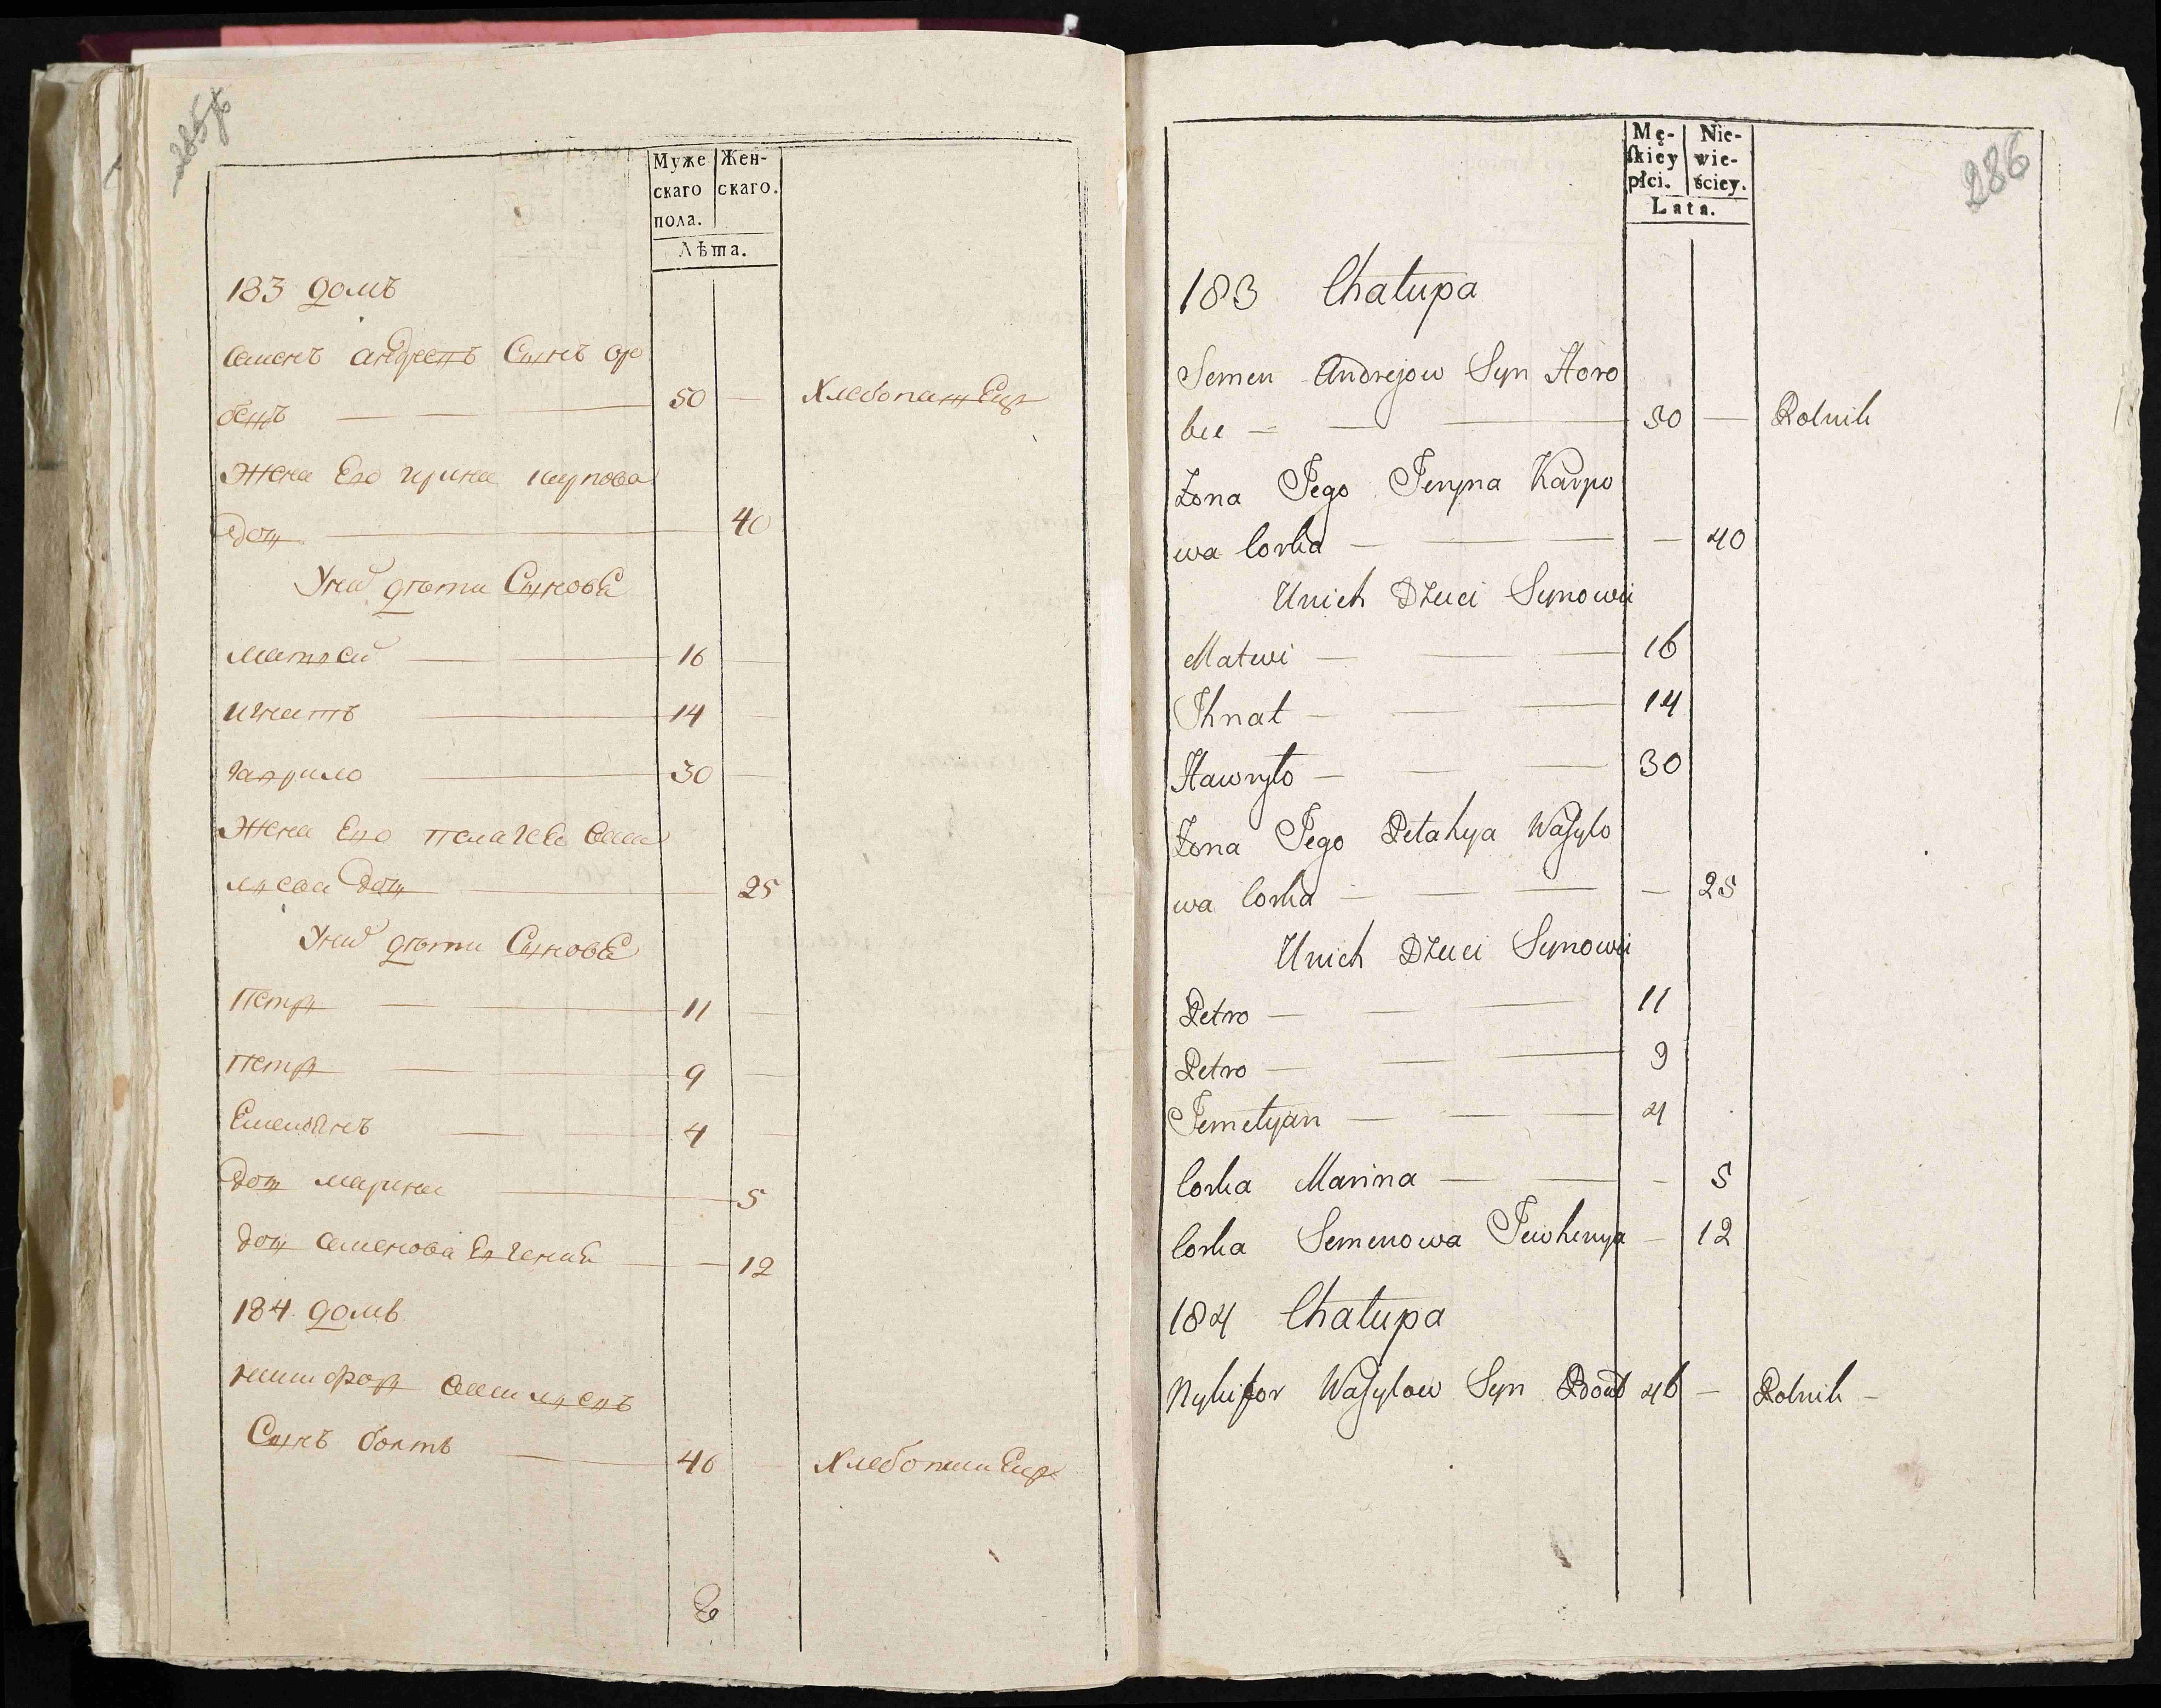 Муже
скаго
пола.
Жен-
скаго.
Лѣта.
183 домъ
Семенъ андреевъ Сынъ оро
бецъ — 50 — Хлебопашецъ
Жена Его ирина карпова
дочь — 40
У них дѣти Сыновя
матвей — 16 —
игнатъ — 14 —
гаврило — 30 —
Жена Его пелагея Васи
лиева дочь — 25
У них дѣти Сыновя
Петръ — 11 —
петръ — 9 —
Емелянъ — 4 —
дочь марина — 5
дочь семенова Евгения — 12
184 домъ
никифоръ василиевъ
Сынъ болтъ — 46 — Хлебопашецъ
286
Mę-
skiey
płci.
Nie-
wie-
ściey.
Lata.
183 Chałupa
Semen Andrejow Syn Horo
bec — 50 — Rolnik
Żona Jego Jeryna Karpo
wa Corka — 40
Unich Dzieci Synowie
Matwi — 16
Ihnat — 14
Hawryło — 30
Żona Jego Petahya Wasylo
wa Corka — 25
Unich Dzieci Synowie
Petro — 11
Petro — 9
Jemelyan — 4
Corka Marina — 5
Corka Semenowa Jewhenya — 12
184 Chałupa
Nykifor Wasylow Syn 46 — Rolnik —